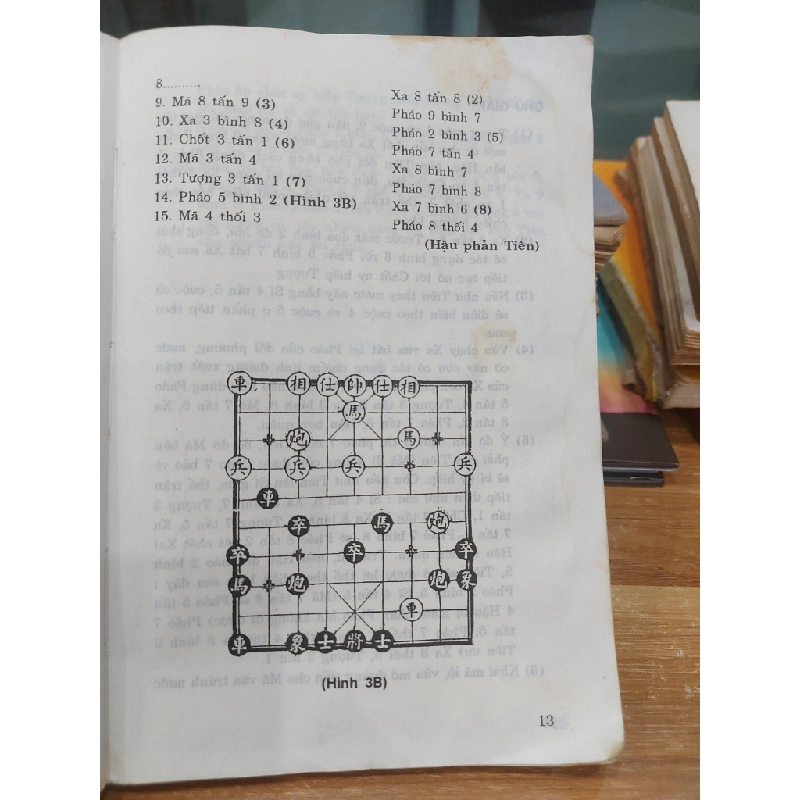 8.......... Xa 8 tấn 8 (2)
9. Mã 8 tấn 9 (3) Pháo 9 bình 7
10. Xa 3 bình 8 (4) Pháo 2 bình 3 (5)
11. Chốt 3 tấn 1 (6) Pháo 7 tấn 4
12. Mã 3 tấn 4 Xa 8 bình 7
13. Tượng 3 tấn 1 (7) Pháo 7 bình 8
14. Pháo 5 bình 2 (Hình 3B) Xa 7 bình 6 (8)
15. Mã 4 thối 3 Pháo 8 thối 4
(Hậu phản Tiên)
車 相 仕 帥 仕 相
馬
炮 馬
兵 兵 兵 兵
車
卒 馬 炮
卒 卒 卒
馬 炮 炮 象
車
車 象 士 將 士
(Hình 3B)
13